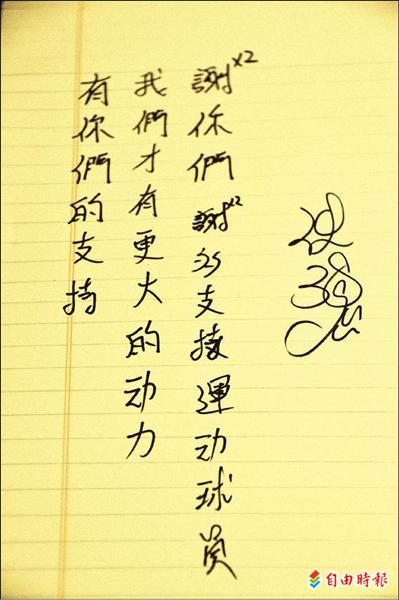 有你們的支持
我們才有更大的动力
謝x2你們 謝x2 支 運动球員
自由時報